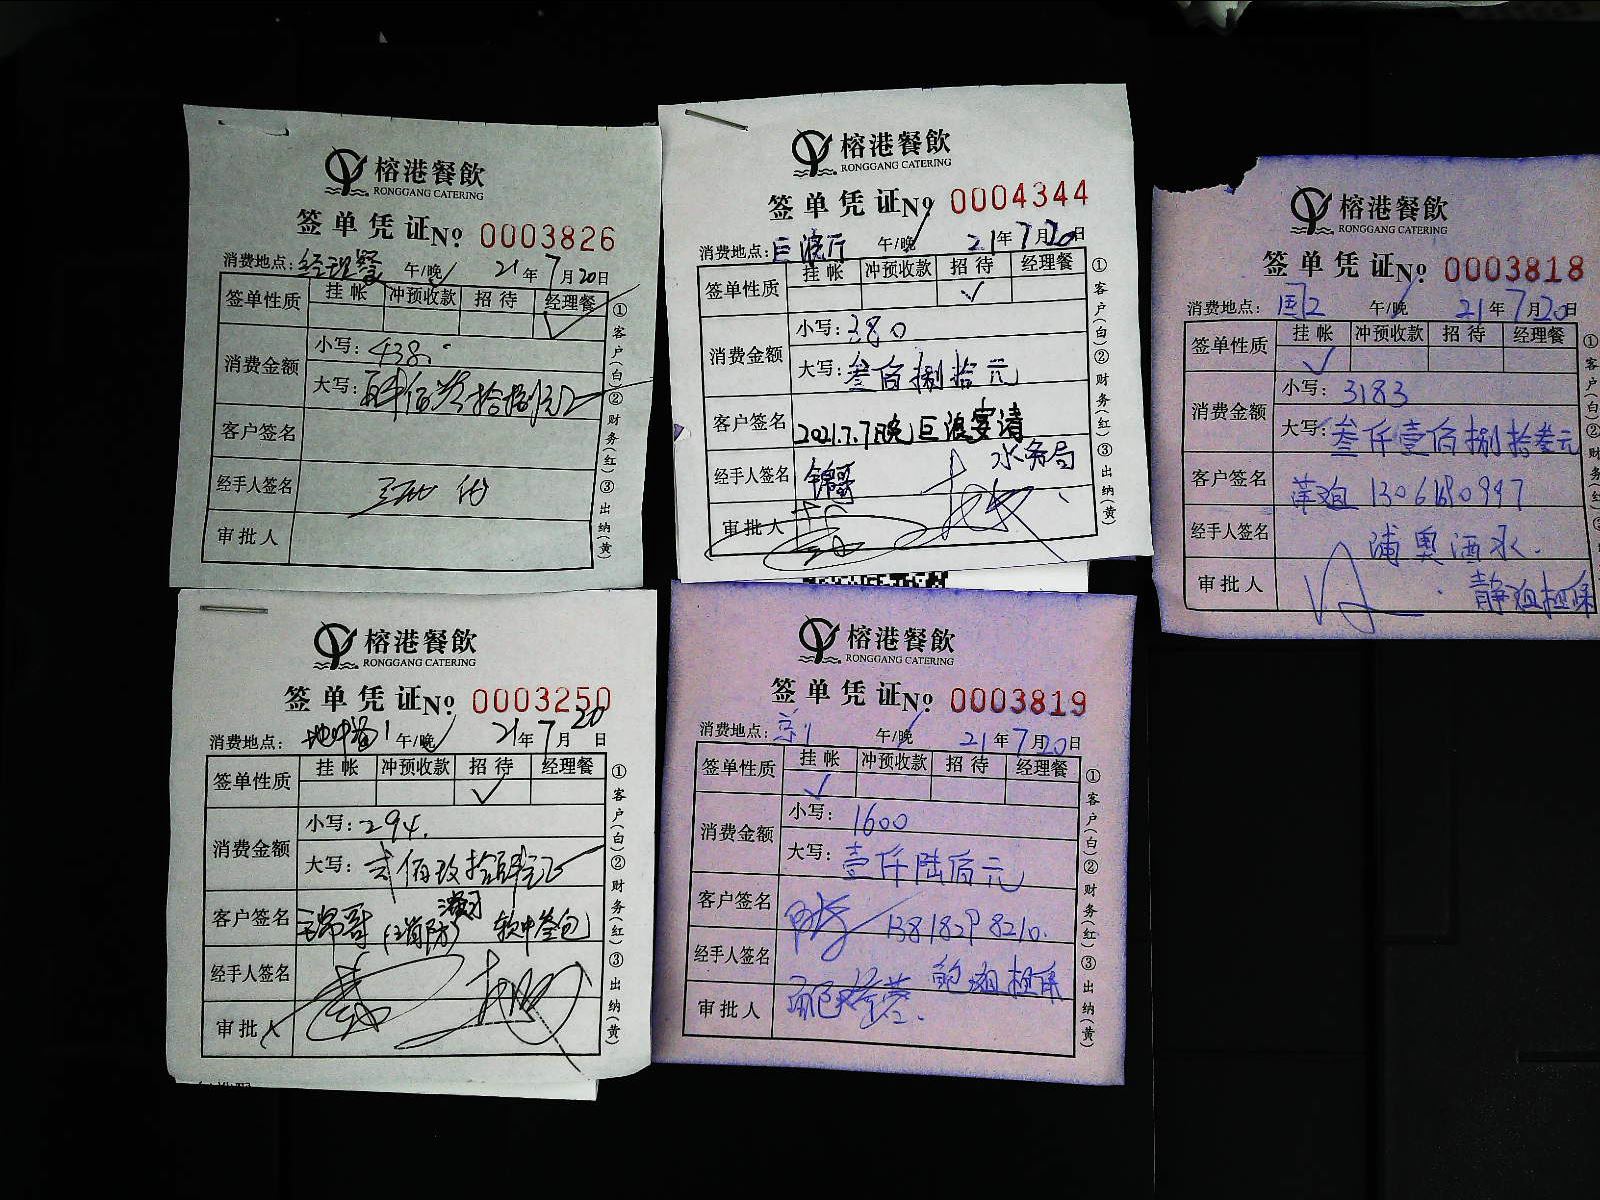 榕港餐飲
RONGGANG CATERING
签单凭证 No. 0003826
消费地点：经理餐 午/晚 21年7月20日
签单性质 挂帐 冲预收款 招待 经理餐
✓
消费金额 小写：438.
大写：肆佰叁拾捌元
客户签名
经手人签名
审批人
①客户（白）②财务（红）③出纳（黄）
榕港餐飲
RONGGANG CATERING
签单凭证 No. 0004344
消费地点：巨浪厅 午/晚 21年7月20日
签单性质 挂帐 冲预收款 招待 经理餐
✓
消费金额 小写：380
大写：叁佰捌拾元
客户签名 2021.7.7晚巨浪宴请
水务局
经手人签名 锦哥
审批人
①客户（白）②财务（红）③出纳（黄）
榕港餐飲
RONGGANG CATERING
签单凭证 No. 0003818
消费地点： 午/晚 21年7月20日
签单性质 挂帐 冲预收款 招待 经理餐
✓
消费金额 小写：3183
大写：叁仟壹佰捌拾叁元
客户签名
经手人签名 浦奥酒水.
审批人 静姐担保
①客户（白）②财务（红）
榕港餐飲
RONGGANG CATERING
签单凭证 No. 0003250
消费地点：地中海1 午/晚 21年7月20日
签单性质 挂帐 冲预收款 招待 经理餐
✓
消费金额 小写：294.
大写：贰佰玖拾肆元
客户签名 瑞哥 软中叁包
经手人签名
审批人
①客户（白）②财务（红）③出纳（黄）
榕港餐飲
RONGGANG CATERING
签单凭证 No. 0003819
消费地点： 午/晚 21年7月20日
签单性质 挂帐 冲预收款 招待 经理餐
✓
消费金额 小写：1600
大写：壹仟陆佰元
客户签名
经手人签名 鲍姐担保
审批人
①客户（白）②财务（红）③出纳（黄）